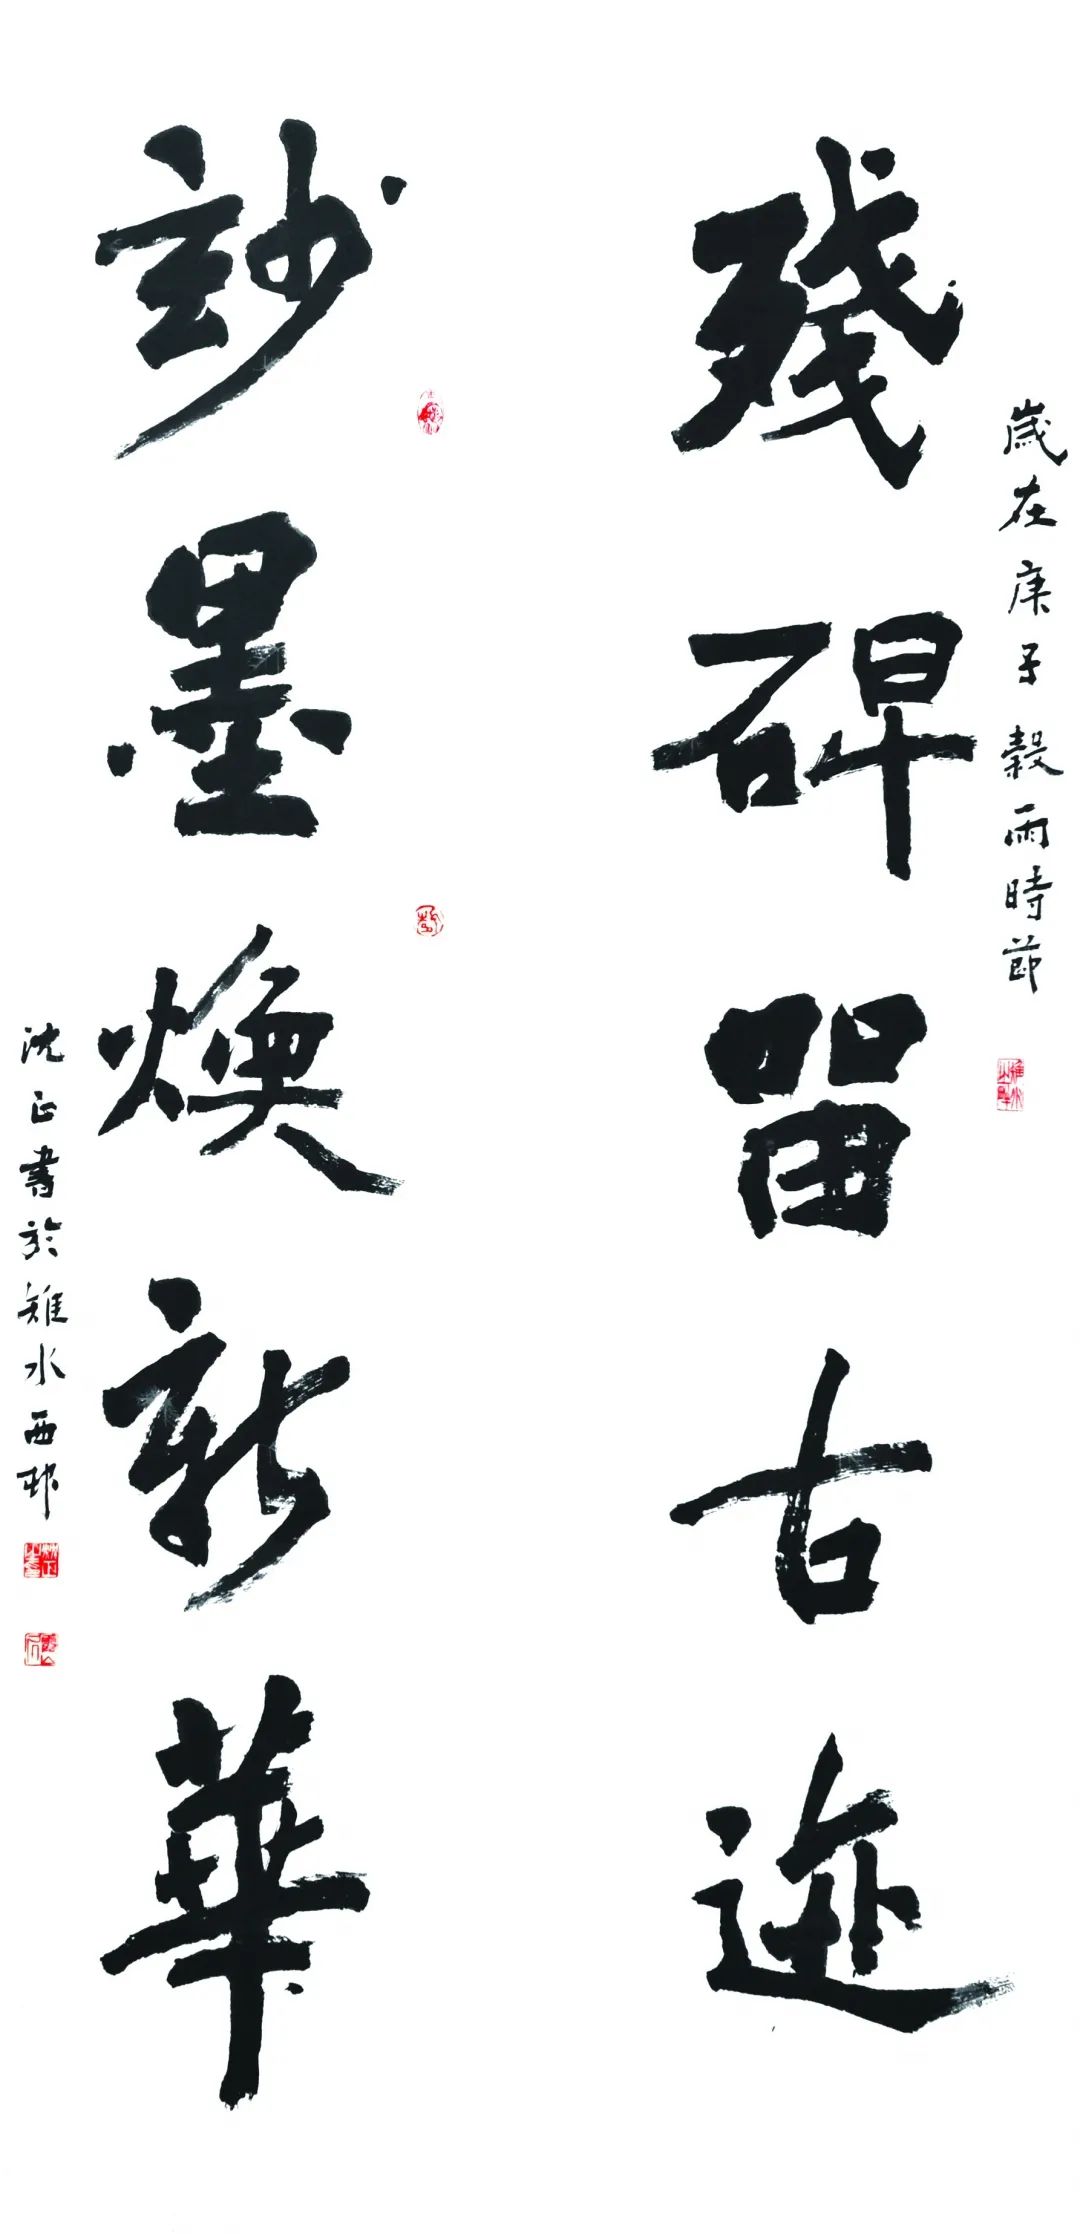 歲在庚子穀雨時節
殘碑留古迹
玅墨煥新華
沈正書於雉水西邨